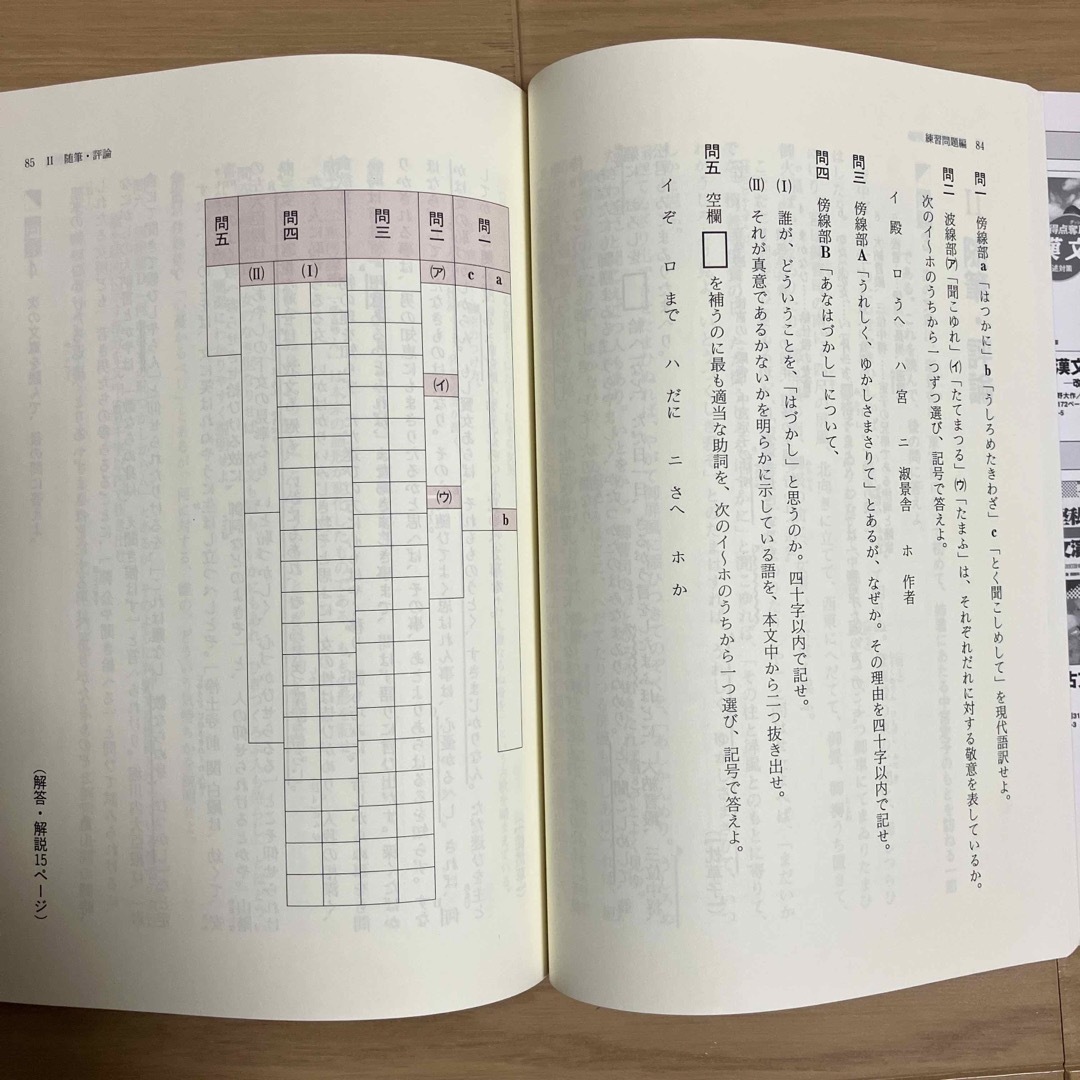 練習問題編 84
問一 傍線部a「はつかに」b「うしろめたきわざ」c「とく聞こしめして」を現代語訳せよ。
問二 波線部㋐「聞こゆれ」㋑「たてまつる」㋒「たまふ」は、それぞれだれに対する敬意を表しているか。
次のイ〜ホのうちから一つずつ選び、記号で答えよ。
イ 殿 ロ うへ ハ 宮 ニ 淑景舎 ホ 作者
問三 傍線部A「うれしく、ゆかしさまさりて」とあるが、なぜか。その理由を四十字以内で記せ。
問四 傍線部B「あなはづかし」について、
(Ⅰ) 誰が、どういうことを、「はづかし」と思うのか。四十字以内で記せ。
(Ⅱ) それが真意であるかないかを明らかに示している語を、本文中から二つ抜き出せ。
問五 空欄□を補うのに最も適当な助詞を、次のイ〜ホのうちから一つ選び、記号で答えよ。
イ ぞ ロ まで ハ だに ニ さへ ホ か
85 Ⅱ 随筆・評論
問一
a
b
c
問二
㋐
㋑
㋒
問三
問四
(Ⅰ)
(Ⅱ)
問五
(解答・解説15ページ)